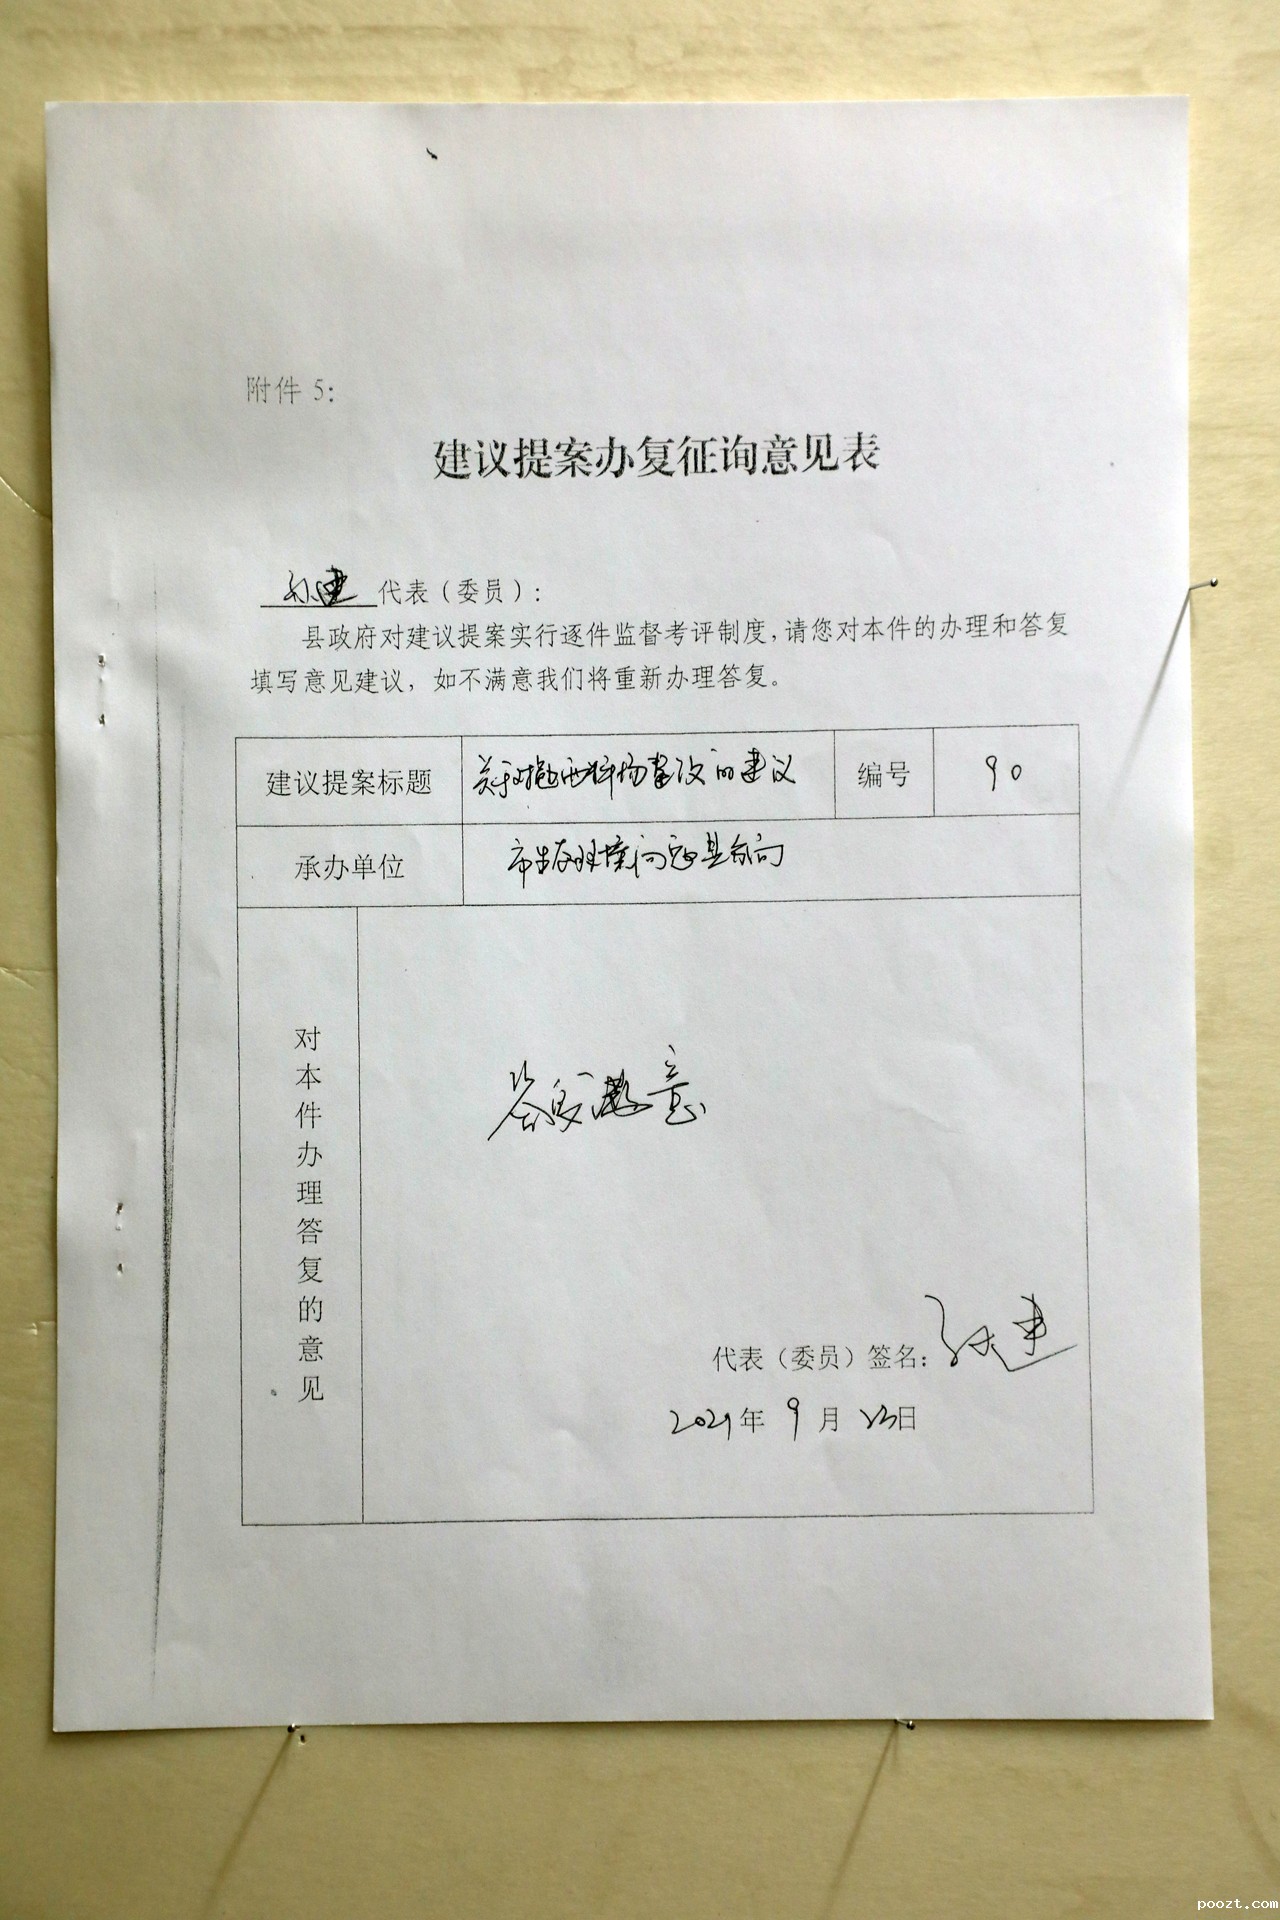 附件 5：
建议提案办复征询意见表
孙建 代表（委员）：
县政府对建议提案实行逐件监督考评制度，请您对本件的办理和答复
填写意见建议，如不满意我们将重新办理答复。
建议提案标题 的建议 编号 90
承办单位 市生态环境局冠县分局
对本件办理答复的意见
答复满意
代表（委员）签名：孙建
2021年 9 月 日
poozt.com